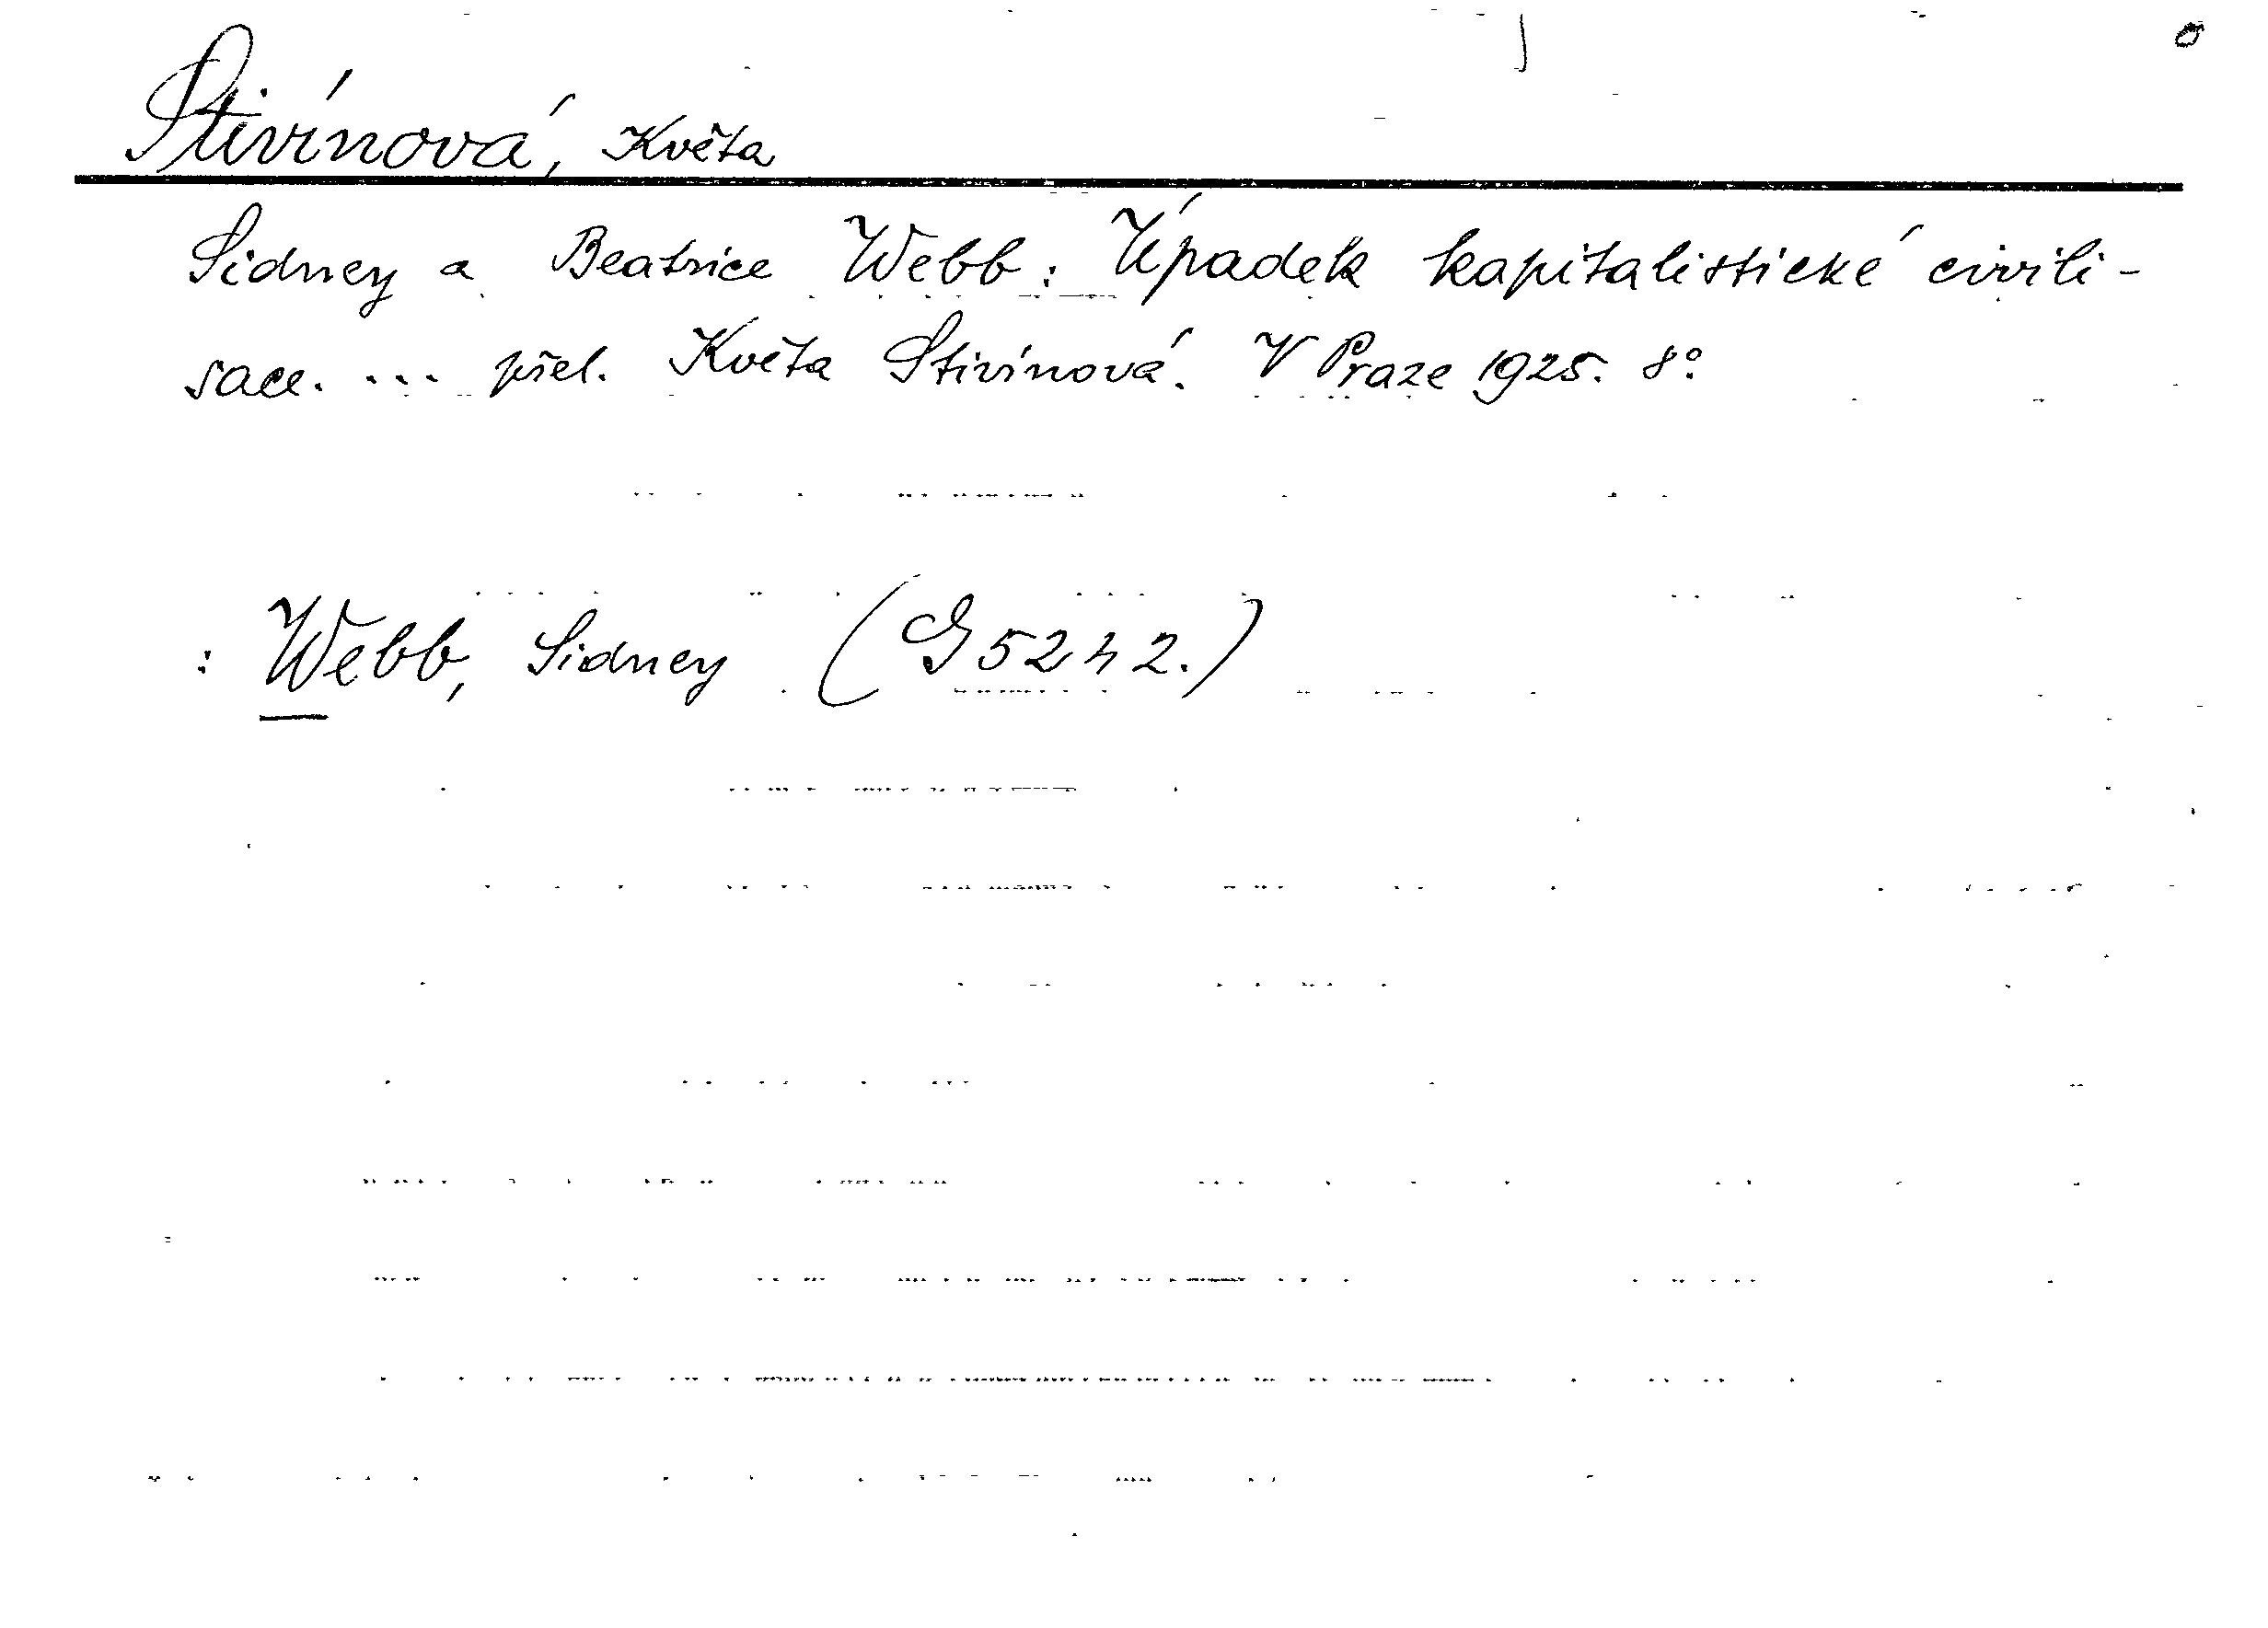 Stivínová, Květa
Sidney a Beatrice Webb: Úpadek kapitalistické civili-
sace. ... přel. Květa Stivínová. V Praze 1925. 8°.
: Webb, Sidney (G 5242.)